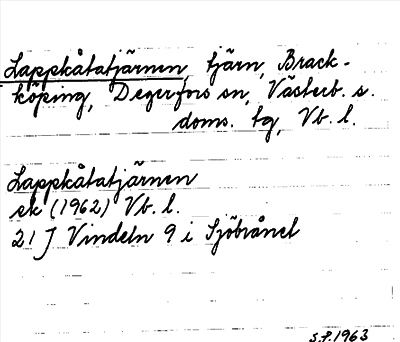 Lappkåtatjärnen, tjärn, Brack-
köping, Degerfors sn, Västerb. s.
doms. tg, Vb. l.
Lappkåtatjärnen
ek (1962) Vb. l.
21 J Vindeln 9 i Sjöbrånet
S.F. 1963